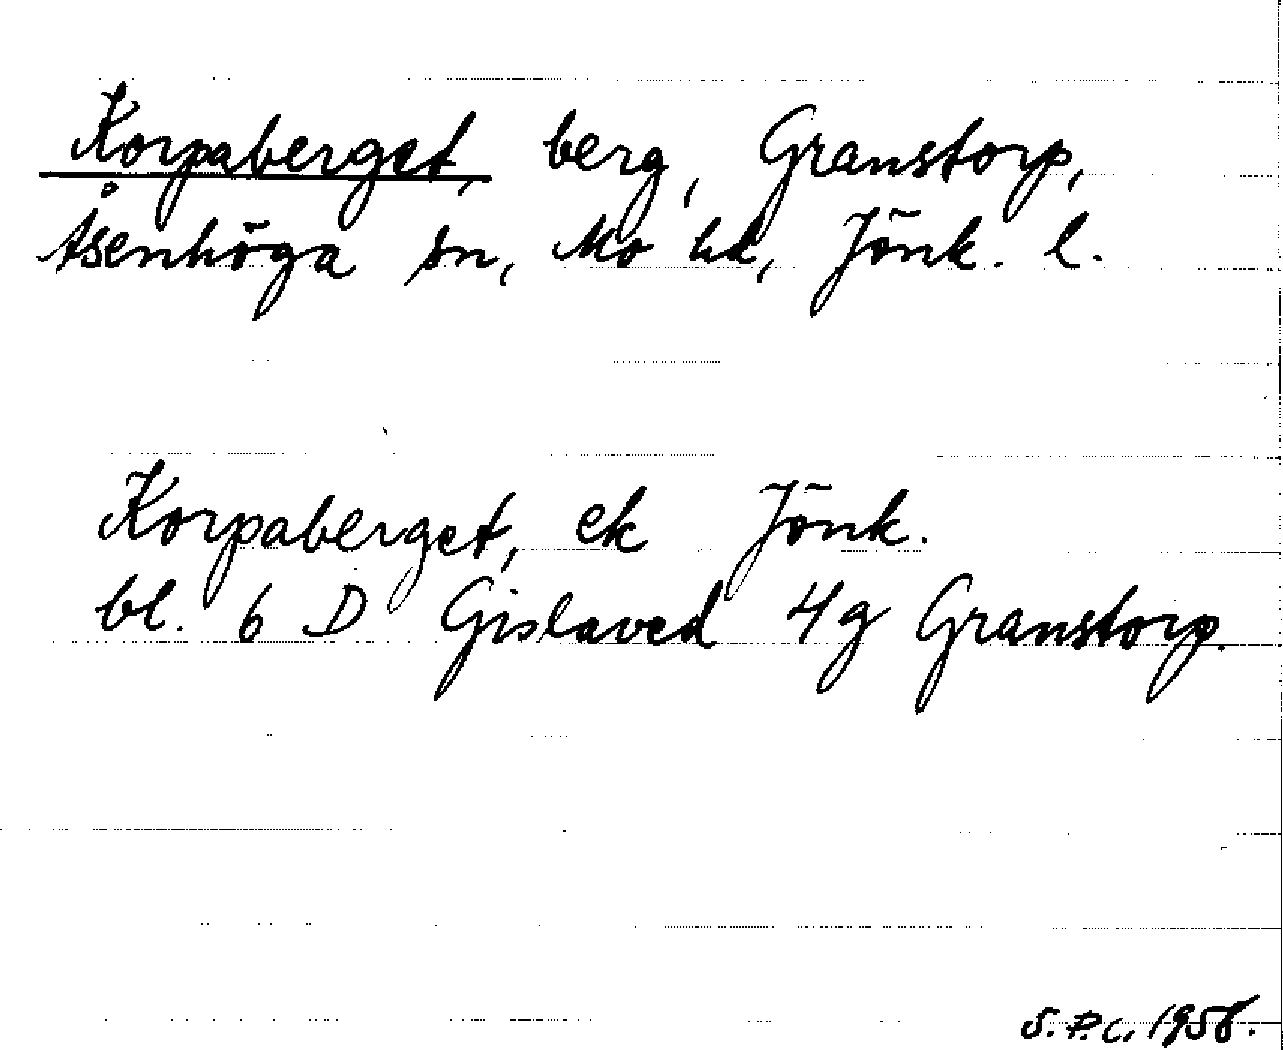 Korpaberget, berg, Granstorp,
Åsenhöga sn, Mo hd, Jönk. l.
Korpaberget, ek Jönk.
bl. 6 D Gislaved 4g Granstorp.
S.P.C. 1958.